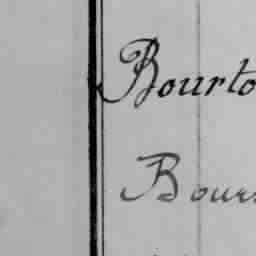 Bourto
Bour